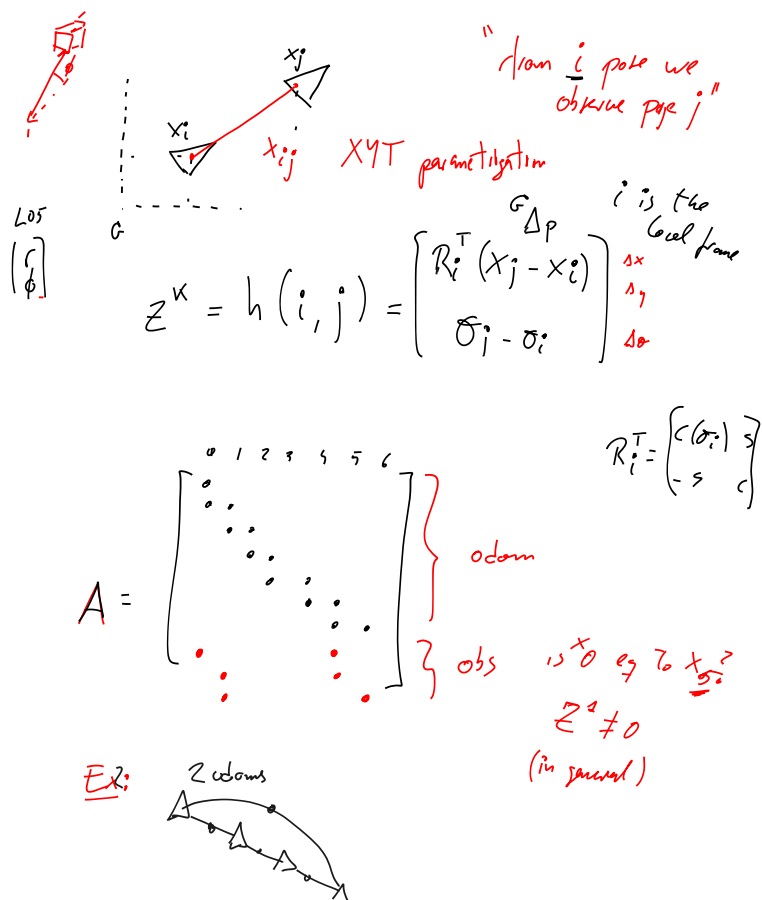 "from i pose we
observe pose j"
xj
xi
xij XYT parametrization
G
L05
[r
ϕ]
ϕ
i is the
local frame
GΔp
z^k = h(i, j) = [R_i^T (x_j - x_i)
θ_j - θ_i]
Δx
Δy
Δθ
R_i^T = [c(θ_i) s
-s c]
0 1 2 3 4 5 6
A =
odom
obs
is x0 eq to x5?
z^1 ≠ 0
(in general)
Ex2: 2 odoms